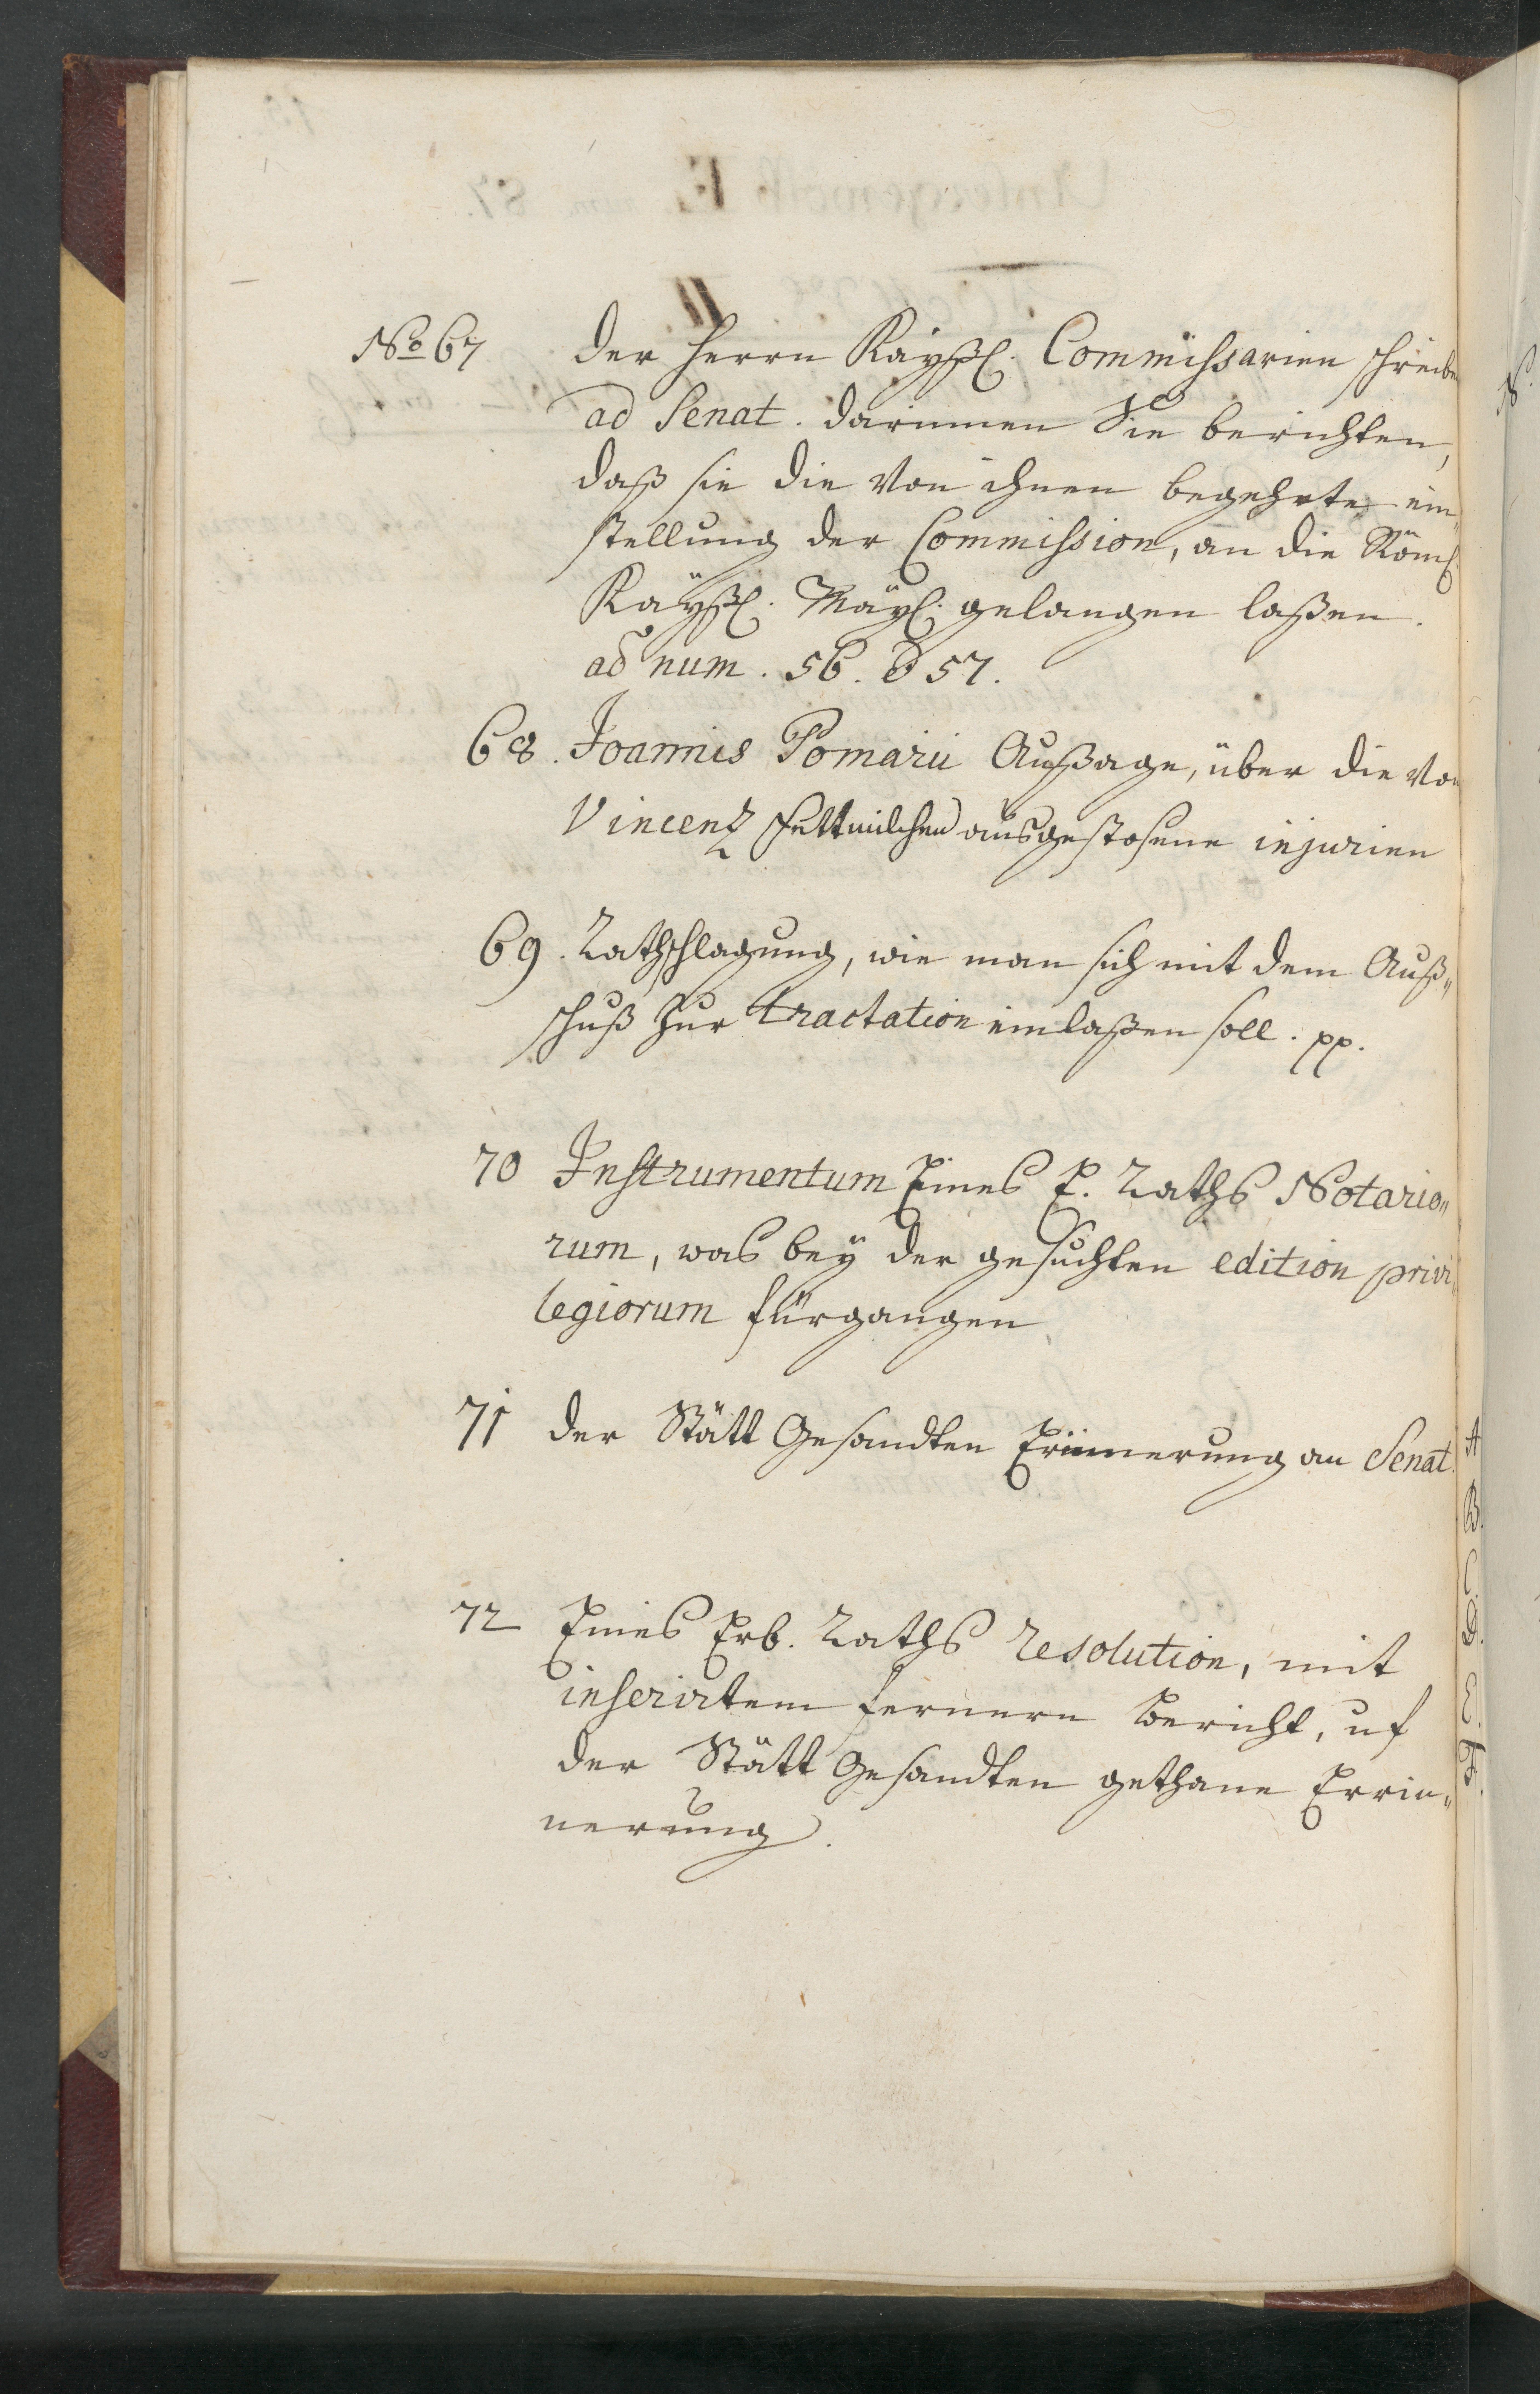 No 67 der Herrn Kayßl. Commißsarien schreiben
ad Senat. darinnen Sie berichten,
daß sie die von ihnen begehrte ein„
stellung der Commission, an die Röml.
Kayßl. Mayl. gelangen laßen.
ad num. 56. & 57.
68. Joannis Pomarii Außage, über die von
Vincenz Fettmilchen ausgestosene injurien
69. Rathschlagung, wie man sich mit dem Auß„
schuß zur tractation einlaßen soll. pp.
70 Instrumentum Eines E. Raths Notario„
rum, was bey der gesuchten edition privi„
legiorum fürgangen
71 der Stätt Gesandten Erinnerung an Senat.
72 Eines Erb. Raths resolution, mit
inserirtem fernern Bericht, uf
der Stätt Gesandten gethane Errin„
nerung.
A
B.
C.
D.
E.
F.